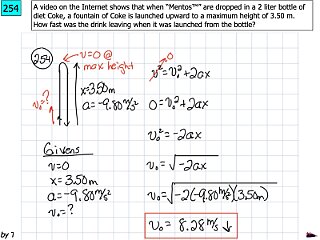 254
A video on the Internet shows that when "Mentos™" are dropped in a 2 liter bottle of
diet Coke, a fountain of Coke is launched upward to a maximum height of 3.50 m.
How fast was the drink leaving when it was launched from the bottle?
254
v=0 @
max height
v₀=?
x=3.50m
a=-9.80m/s²
Givens
v=0
x=3.50m
a=-9.80m/s²
v₀=?
0
v²=v₀²+2ax
0=v₀²+2ax
v₀²=-2ax
v₀=√-2ax
v₀=√-2(-9.80m/s²)(3.50m)
v₀=8.28m/s ↓
by 7